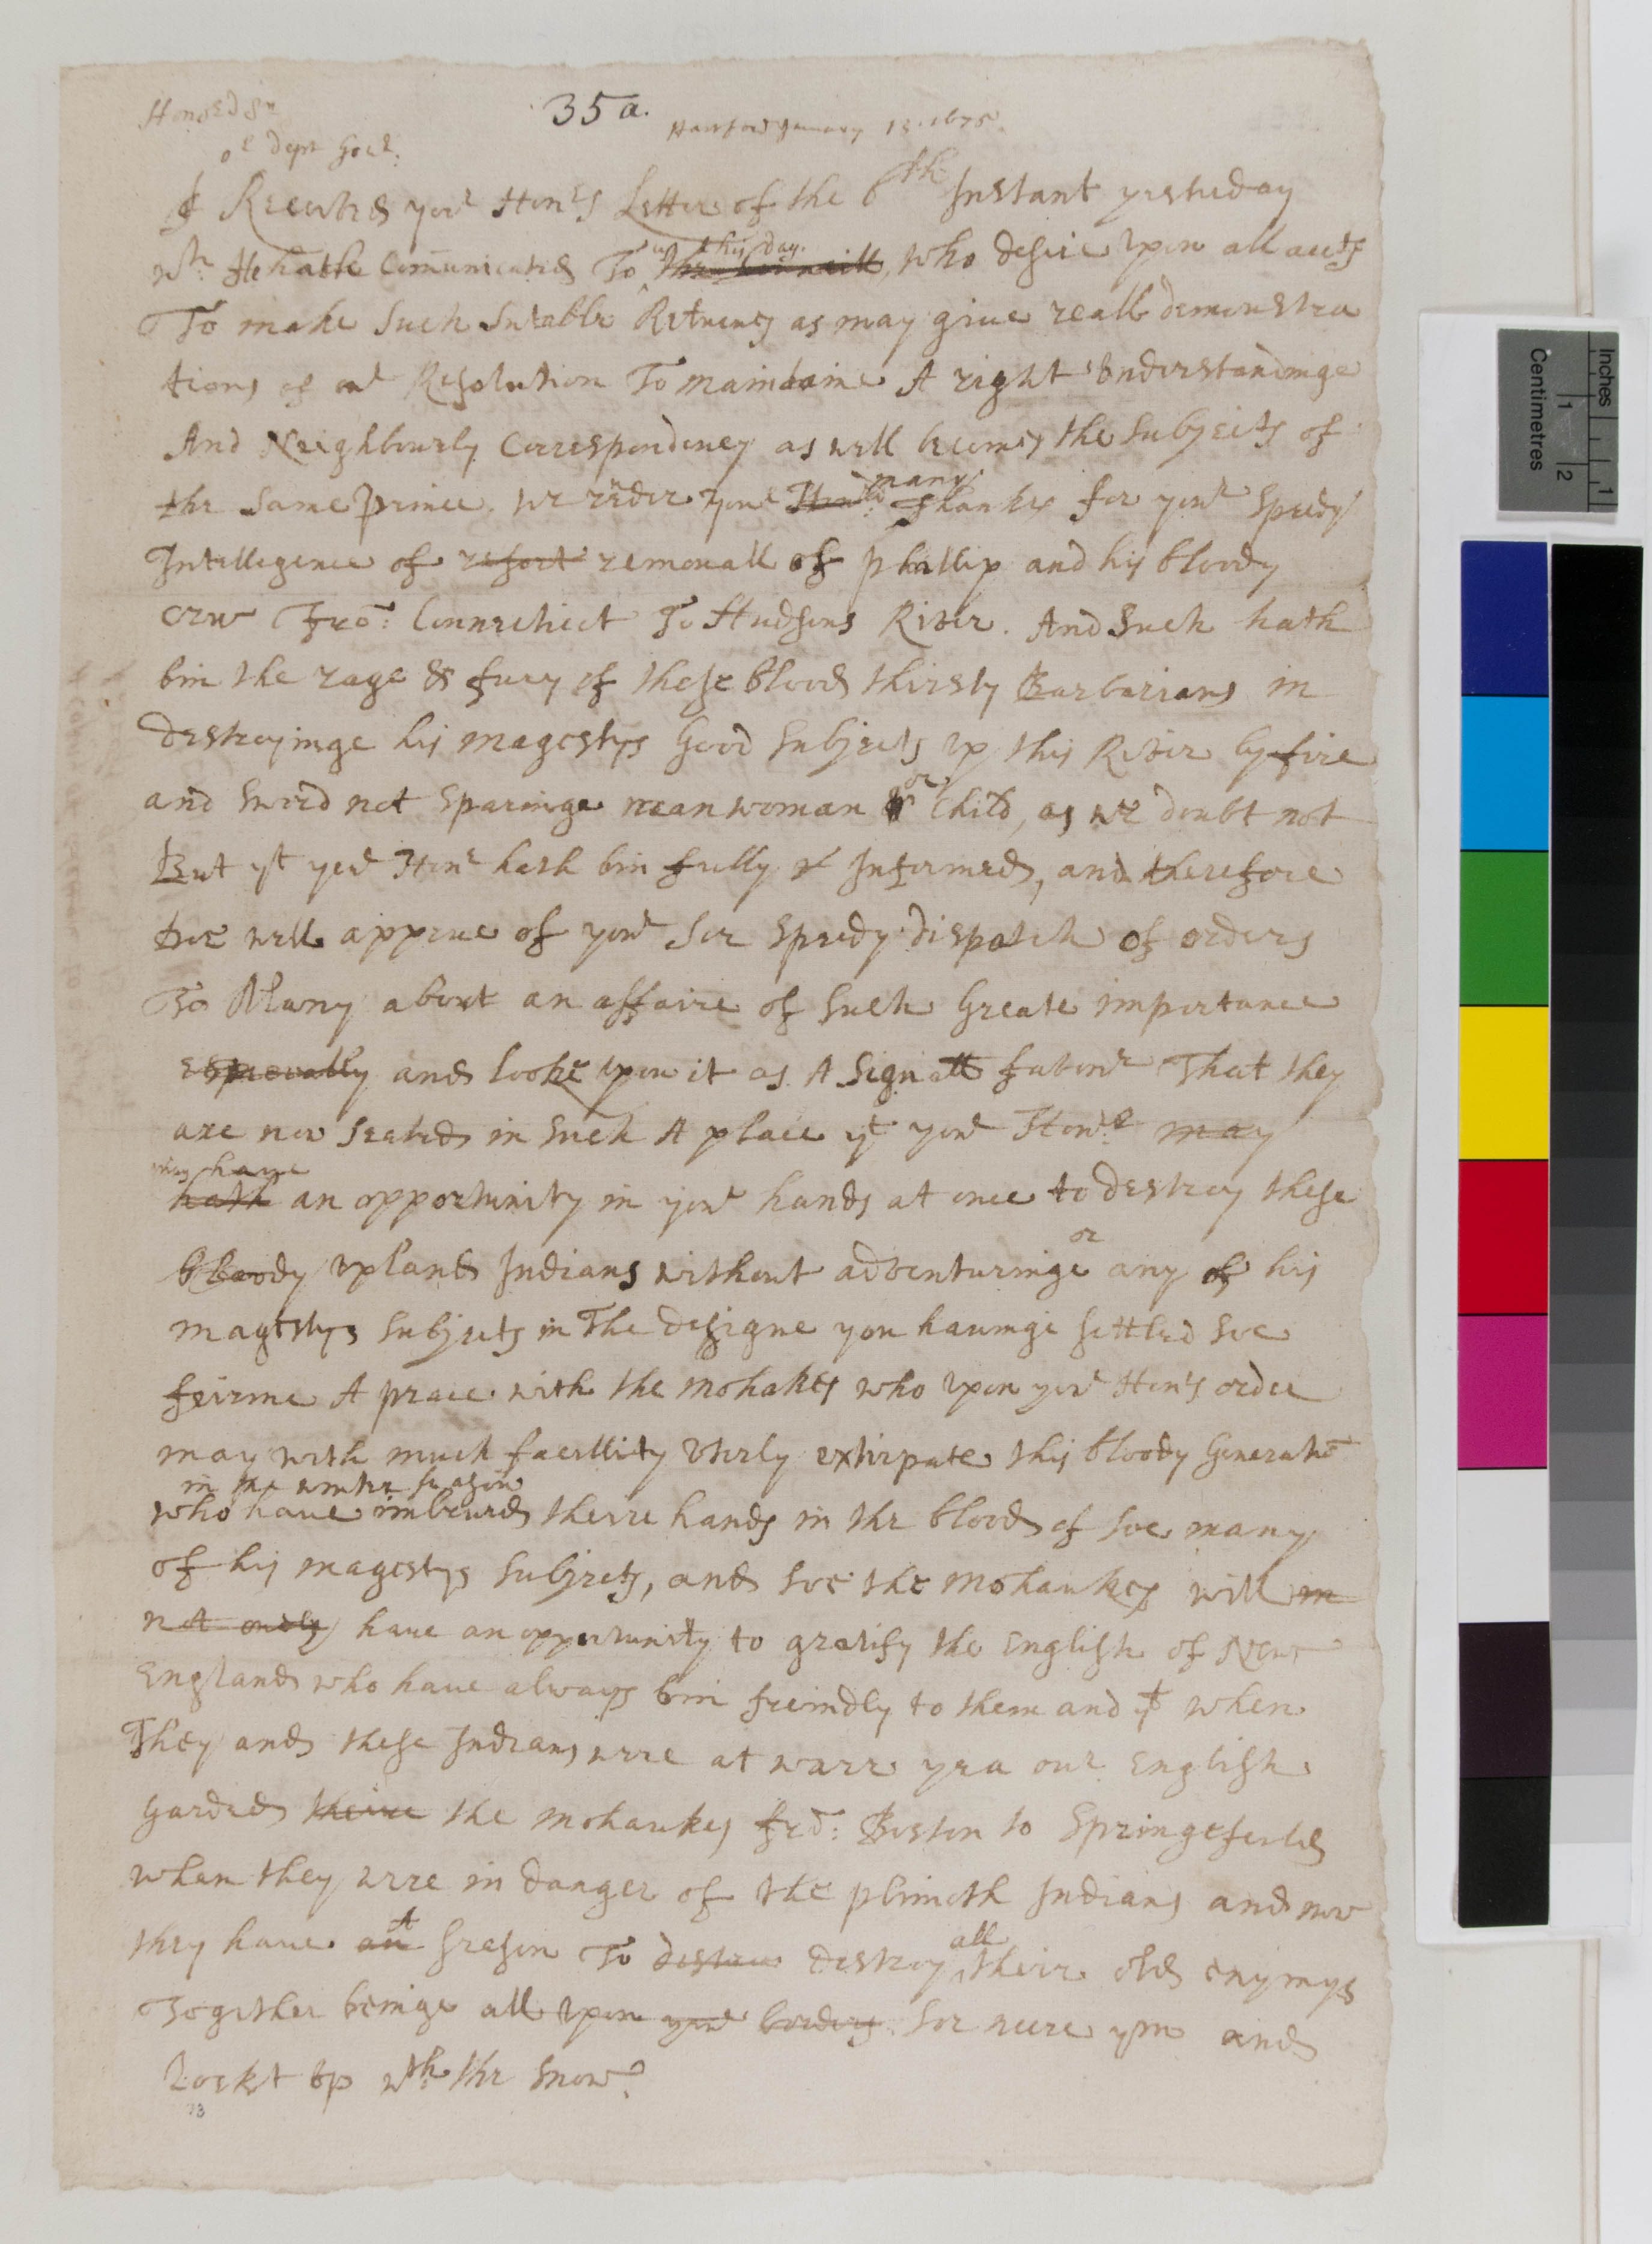 35 a.
Honord Sr
Hartford January 13. 1675.
or Depu Govr:
I Received your Honrs Letter of the 6th Instant yesterday
wch He hath Comunicated To us this day. the Councill, who desire upon all accts
To make Such Sutable Returnes as may giue reall demonstra
tions of our Resolution To maintaine A right understandinge
And Neighbourly Correspondency as well becomes the Subjects of
the Same prince. we rēder your Honr many thankes for your Speedy
Intelligence of refort remouall of phillip and his bloody
crew Frō: Connecticut To Hudsons River. And Such hath
bin the rage & fury of these blood thirsty Barbarians in
destroyinge his magestys Good Subjects up this River by fire
and Sword not Sparinge man woman or or Child, as we doubt not
But yt your Honr hath bin fully Informed, and therefore
doe well approue of your soe speedy dispatch of orders
To Albany about an affaire of Such Greate importance
especially and looke upon it as A Signall favour That they
are now Seated in Such A place yt your Honr may
may haue
hath an opportunity in your hands at once to destroy these
bloody upland Indians without adventuringe or any of his
magestys Subjects in The designe you hauinge settled soe
feirme A peace with the mohakes who upon your Honrs order
may with much facillity uterly extirpate this bloody Generatiō
in the winter season
who haue imbrued theire hands in the blood of soe many
of his magestys Subjects, and soe the mohaukes will in
not onely haue an opportunity to gratify the English of New
England who haue always bin freindly to them and yt when
They and these Indians were at warr yea our English
garded theire the mohaukes frō: Boston to Springefeild
when they were in danger of the plimoth Indians and now
they haue an A season To destroy destroy all theire old enymys
Together beinge all upon your borders soe neere ym and
Lockt up wth the snow.